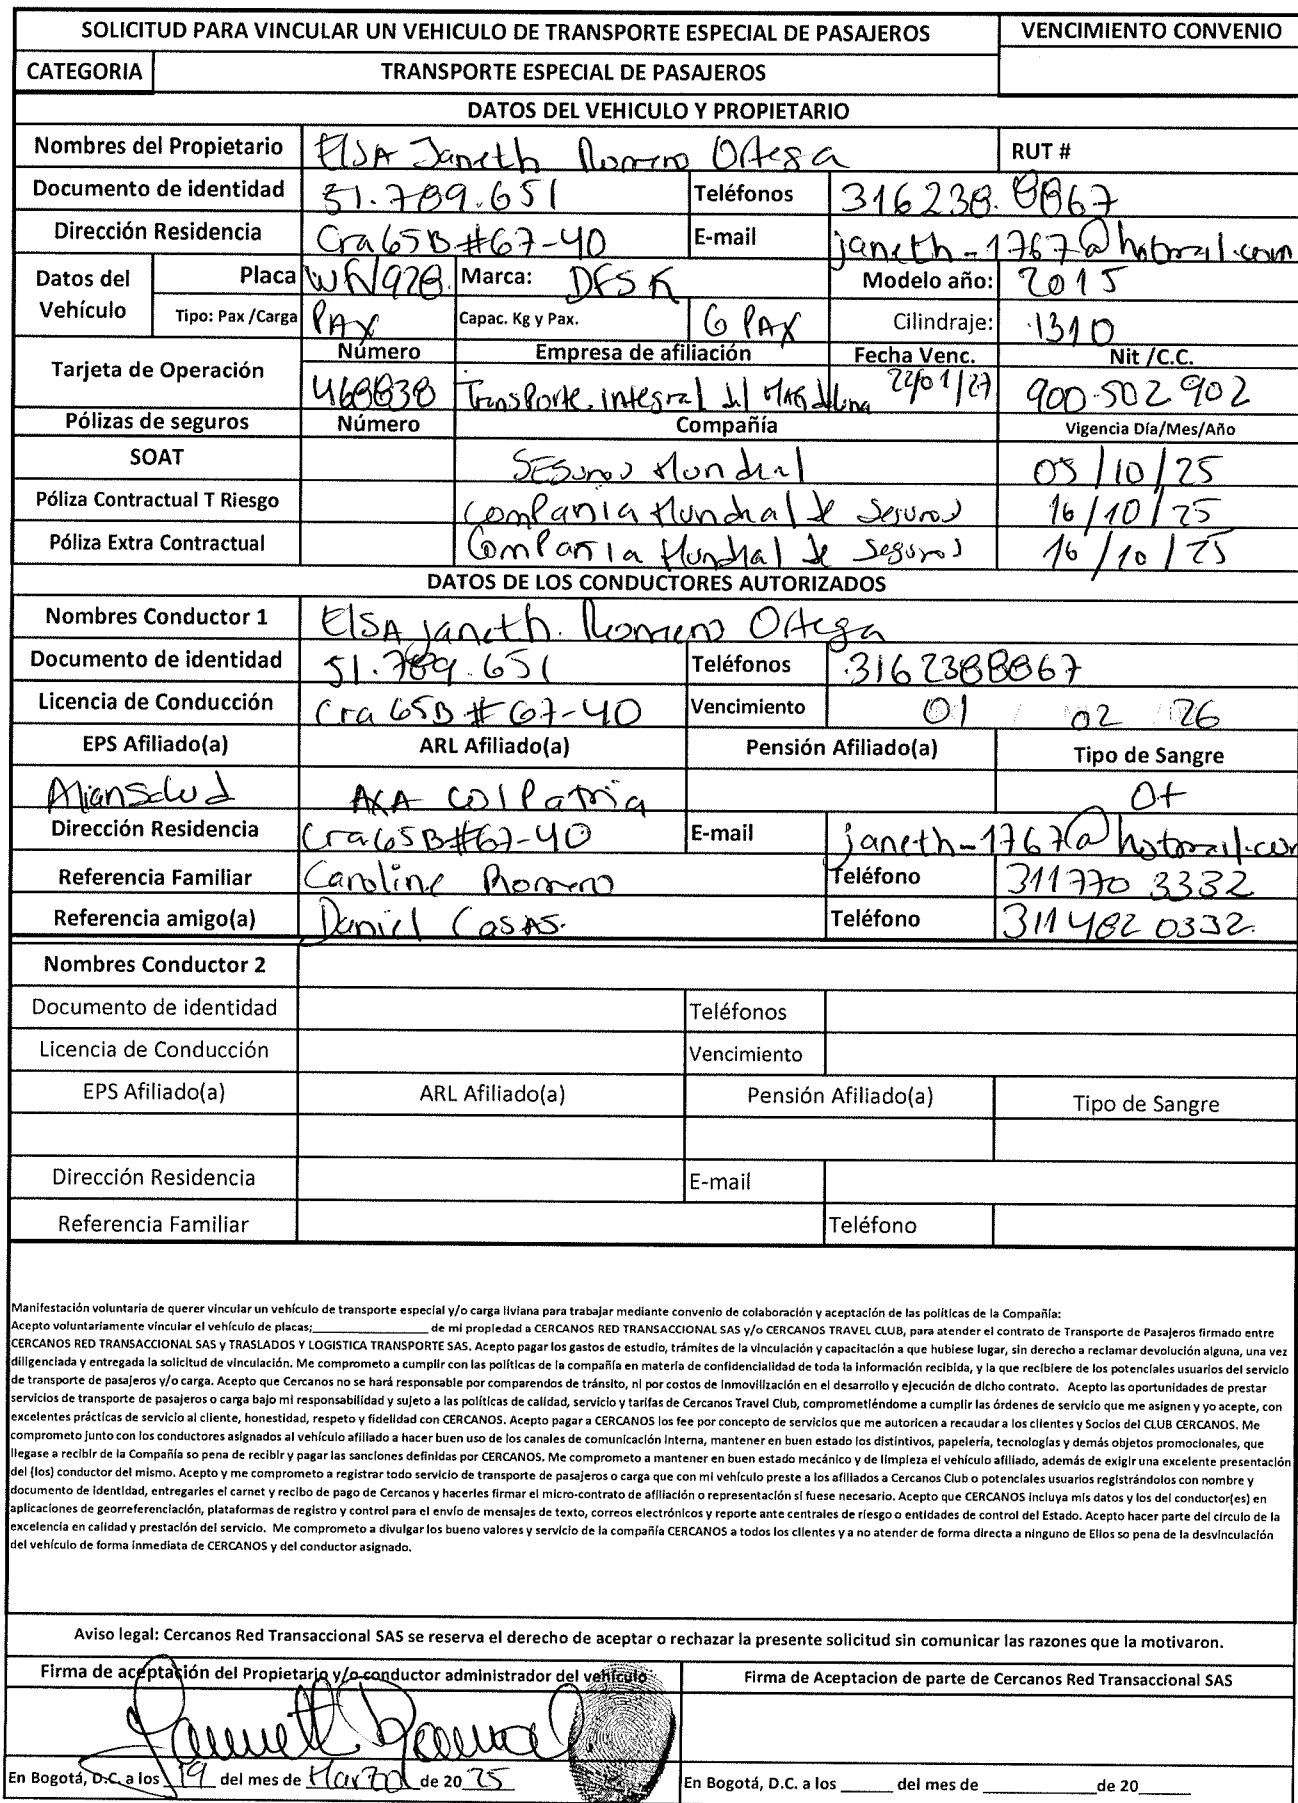 SOLICITUD PARA VINCULAR UN VEHICULO DE TRANSPORTE ESPECIAL DE PASAJEROS VENCIMIENTO CONVENIO
CATEGORIA TRANSPORTE ESPECIAL DE PASAJEROS
DATOS DEL VEHICULO Y PROPIETARIO
Nombres del Propietario ElSA Janeth Romero Ortega RUT #
Documento de identidad 51.789.651 Teléfonos 316238.8867
Dirección Residencia Cra 65B #67-40 E-mail janeth-1767@hotmail.com
Datos del Vehículo Placa WFV928. Marca: DFSK Modelo año: 2015
Tipo: Pax /Carga PAX Capac. Kg y Pax. 6 PAX Cilindraje: 1310
Tarjeta de Operación Número Empresa de afiliación Fecha Venc. Nit /C.C.
468838 Transporte integral del MAGdalena 22/01/27 900.502902
Pólizas de seguros Número Compañía Vigencia Día/Mes/Año
SOAT SEguros Mundial 05/10/25
Póliza Contractual T Riesgo Compañia Mundial de Seguros 16/10/25
Póliza Extra Contractual Compañia Mundial de Seguros 16/10/25
DATOS DE LOS CONDUCTORES AUTORIZADOS
Nombres Conductor 1 ElSA janeth. Romero Ortega
Documento de identidad 51.789.651 Teléfonos 3162388867
Licencia de Conducción Cra 65B #67-40 Vencimiento 01 / 02 / 26
EPS Afiliado(a) ARL Afiliado(a) Pensión Afiliado(a) Tipo de Sangre
Aliansalud AXA COlPatria O+
Dirección Residencia Cra 65B #67-40 E-mail janeth-1767@hotmail.com
Referencia Familiar Caroline Romero Teléfono 311770 3332
Referencia amigo(a) Daniel CasAS. Teléfono 311482 0332.
Nombres Conductor 2
Documento de identidad Teléfonos
Licencia de Conducción Vencimiento
EPS Afiliado(a) ARL Afiliado(a) Pensión Afiliado(a) Tipo de Sangre
Dirección Residencia E-mail
Referencia Familiar Teléfono
Manifestación voluntaria de querer vincular un vehículo de transporte especial y/o carga liviana para trabajar mediante convenio de colaboración y aceptación de las políticas de la Compañía:
Acepto voluntariamente vincular el vehículo de placas;__________________ de mi propiedad a CERCANOS RED TRANSACCIONAL SAS y/o CERCANOS TRAVEL CLUB, para atender el contrato de Transporte de Pasajeros firmado entre
CERCANOS RED TRANSACCIONAL SAS y TRASLADOS Y LOGISTICA TRANSPORTE SAS. Acepto pagar los gastos de estudio, trámites de la vinculación y capacitación a que hubiese lugar, sin derecho a reclamar devolución alguna, una vez
diligenciada y entregada la solicitud de vinculación. Me comprometo a cumplir con las políticas de la compañía en materia de confidencialidad de toda la información recibida, y la que recibiere de los potenciales usuarios del servicio
de transporte de pasajeros y/o carga. Acepto que Cercanos no se hará responsable por comparendos de tránsito, ni por costos de inmovilización en el desarrollo y ejecución de dicho contrato. Acepto las oportunidades de prestar
servicios de transporte de pasajeros o carga bajo mi responsabilidad y sujeto a las políticas de calidad, servicio y tarifas de Cercanos Travel Club, comprometiéndome a cumplir las órdenes de servicio que me asignen y yo acepte, con
excelentes prácticas de servicio al cliente, honestidad, respeto y fidelidad con CERCANOS. Acepto pagar a CERCANOS los fee por concepto de servicios que me autoricen a recaudar a los clientes y Socios del CLUB CERCANOS. Me
comprometo junto con los conductores asignados al vehículo afiliado a hacer buen uso de los canales de comunicación interna, mantener en buen estado los distintivos, papelería, tecnologías y demás objetos promocionales, que
llegase a recibir de la Compañía so pena de recibir y pagar las sanciones definidas por CERCANOS. Me comprometo a mantener en buen estado mecánico y de limpieza el vehículo afiliado, además de exigir una excelente presentación
del (los) conductor del mismo. Acepto y me comprometo a registrar todo servicio de transporte de pasajeros o carga que con mi vehículo preste a los afiliados a Cercanos Club o potenciales usuarios registrándolos con nombre y
documento de identidad, entregarles el carnet y recibo de pago de Cercanos y hacerles firmar el micro-contrato de afiliación o representación si fuese necesario. Acepto que CERCANOS incluya mis datos y los del conductor(es) en
aplicaciones de georreferenciación, plataformas de registro y control para el envío de mensajes de texto, correos electrónicos y reporte ante centrales de riesgo o entidades de control del Estado. Acepto hacer parte del circulo de la
excelencia en calidad y prestación del servicio. Me comprometo a divulgar los bueno valores y servicio de la compañía CERCANOS a todos los clientes y a no atender de forma directa a ninguno de Ellos so pena de la desvinculación
del vehículo de forma inmediata de CERCANOS y del conductor asignado.
Aviso legal: Cercanos Red Transaccional SAS se reserva el derecho de aceptar o rechazar la presente solicitud sin comunicar las razones que la motivaron.
Firma de aceptación del Propietario y/o conductor administrador del vehículo Firma de Aceptacion de parte de Cercanos Red Transaccional SAS
En Bogotá, D.C. a los 19 del mes de Marzo de 20 25 En Bogotá, D.C. a los _____ del mes de __________ de 20_____